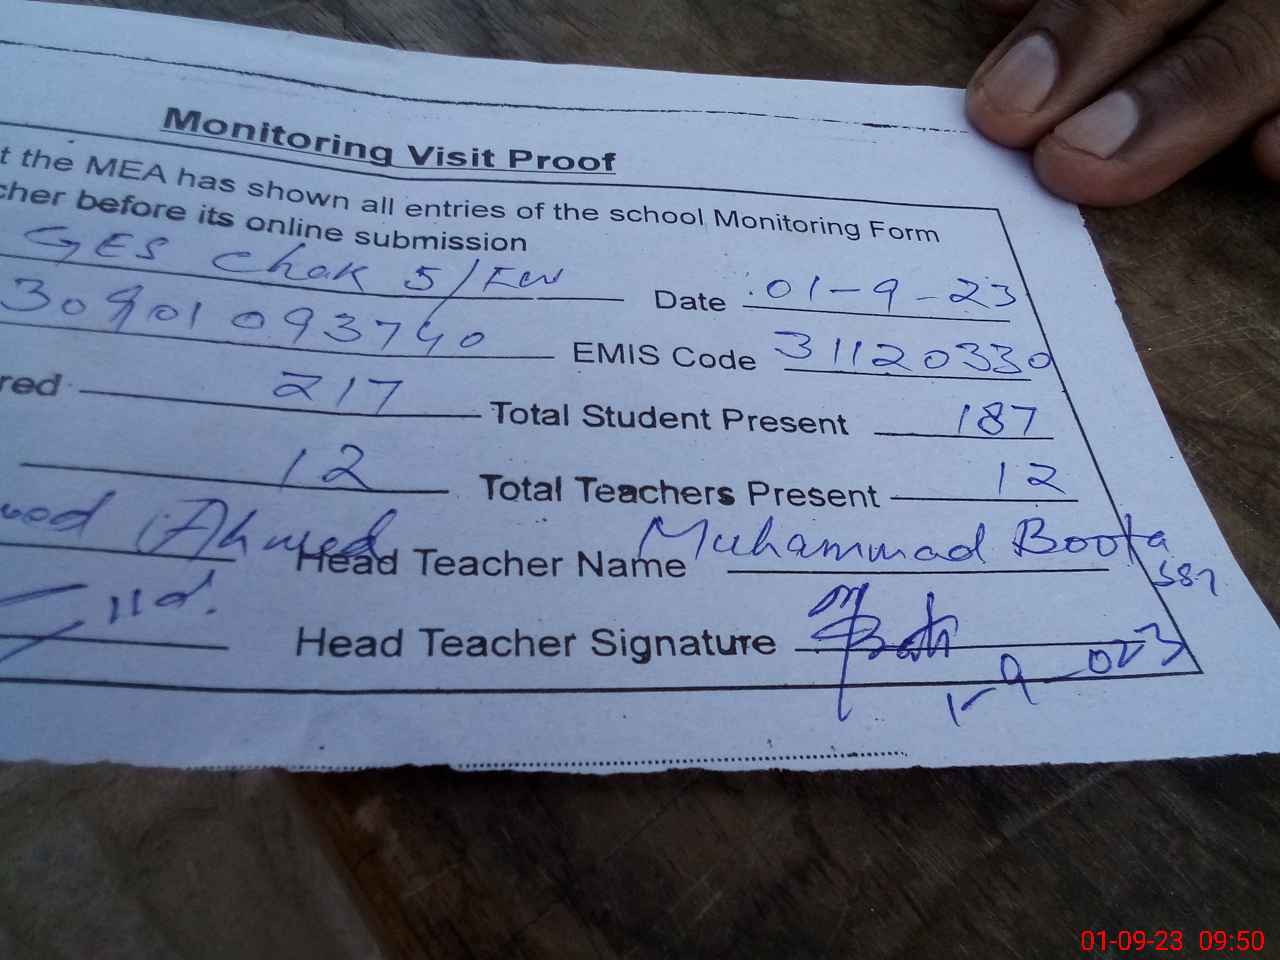 Monitoring Visit Proof
t the MEA has shown all entries of the school Monitoring Form
cher before its online submission
GES Chak 5/FW Date 01-9-23
30901093740 EMIS Code 31120330
red 217 Total Student Present 187
12 Total Teachers Present 12
ood Ahmed Head Teacher Name Muhammad Boota
SST
Head Teacher Signature
1-9-023
01-09-23 09:50